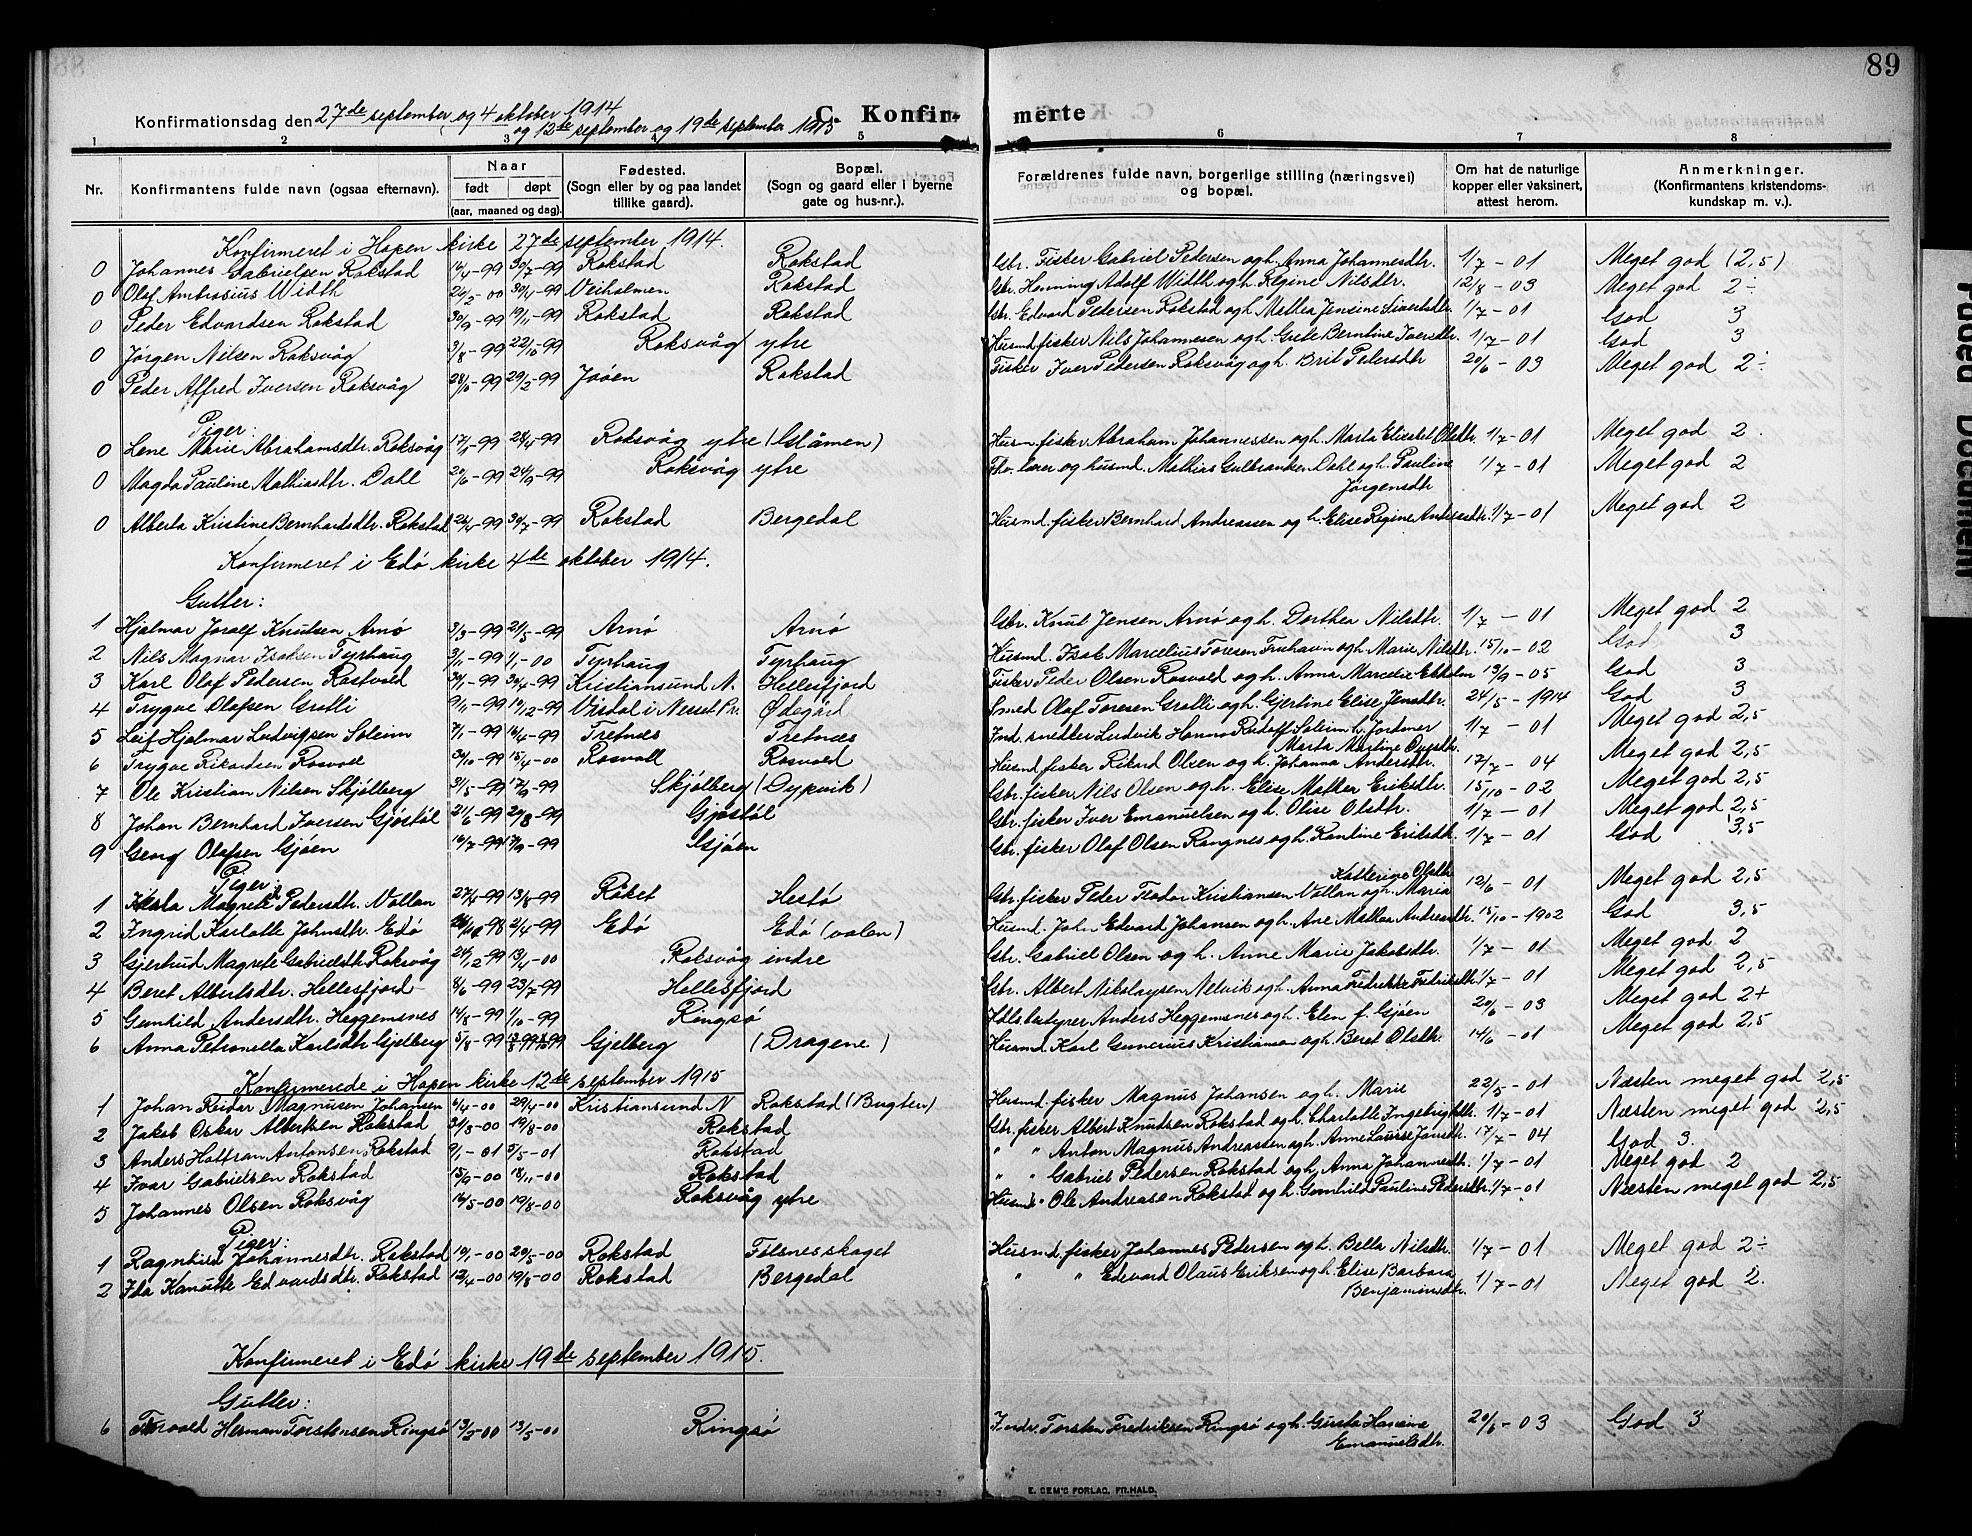 89
Konfirmationsdag den 27de september og 4 oktober 1914
og 12te september og 19de september 1915
C. Konfirmerte
1 2 3 4 5 6 7 8
Nr. Konfirmantens fulde navn (ogsaa efternavn). Naar født døpt (aar, maaned og dag). Fødested. (Sogn eller by og paa landet tillike gaard). Bopæl. (Sogn og gaard eller i byerne gate og hus-nr.). Forældrenes fulde navn, borgerlige stilling (næringsvei) og bopæl. Om hat de naturlige kopper eller vaksinert, attest herom. Anmerkninger. (Konfirmantens kristendomskundskap m. v.).
Konfirmeret i Hopen kirke 27de september 1914.
0 Johannes Gabrielsen Rokstad 16/4-99 30/7-99 Rokstad Rokstad Gbr. Fisker Gabriel Pedersen og h. Anna Johannesdtr. 1/7-01 Meget god (2,5)
0 Olaf Ambrosius Width 30/4-99 Veiholmen Rokstad Gbr. Henning Adolf Width og h. Regine Nilsdtr. 12/8-03 Meget god 2÷
0 Peder Edvardsen Rokstad 30/9-99 19/11-99 Rokstad Rokstad Gbr. Edvard Pedersen Rokstad og h. Mathea Jensine Sivertsdtr. 1/7-01 God 3
0 Jørgen Nilsen Roksvåg 3/8-99 22/10-99 Roksvåg ytre Husmd. fisker Nils Johannesen og h. Grete Berntine Iversdtr. 1/7-01 God 3
0 Peder Alfred Iversen Roksvåg 29/2-99 Rokstad Fisker Iver Pedersen Roksvåg og h. Brit Petersdtr 20/6-03 Meget god 2÷
Piger:
0 Lene Marie Abrahamsdtr. Roksvåg Roksvåg ytre Husm. fisker Abraham Johannessen og h. Marta Elisabet Olsdtr. 1/7-01 Meget god 2.
0 Magda Pauline Mathiasdtr. Dahl 20/6-99 24/9-99 Roksvåg ytre Mathias Gulbransen Dahl og h. Pauline Jørgensdtr 1/7-01 Meget god 2
0 Alberta Kristine Bernhardsdtr. Rokstad 30/7-99 Rokstad Bergedal Husmd. fisker Bernhard Andreassen og h. Elise Regine Andreasdtr. 1/7-01 Meget god 2
Konfirmeret i Edø kirke 4de oktober 1914.
Gutter:
1 Hjalmar Joralf Knutsen Arnø 3/3-99 21/5-99 Arnø Arnø Gbr. Knut Jensen Arnø og h. Dorthea Nilsdtr. 1/7-01 Meget god 2
2 Nils Magnar Isaksen Tyrhaug 3/11-99 1/1-00 Tyrhaug Tyrhaug Husmd. Isak Marcelius Toresen og h. Marie Nilsdtr. 15/10-02 God 3
3 Karl Olaf Pedersen Rostvold 30/1-99 30/4-99 Kristiansund N. Hellesfjord Fisker Peder Olsen Rosvold og h. Anna Marcelie Ekholm 13/9-05 God 3
4 Trygve Olafsen Grotli 9/11-99 19/12-99 Nesset Pr. Ødegård Smed Olaf Toresen Grotli og h. Gjertine Elise Jensdtr. 24/5-1914 God 3
5 Leif Hjalmar Ludvigsen Soleim 7/1-99 16/4-99 Tretnæs Tretnæs Ind. snedker Ludvik Hanno Reidolf Soleim h. Jordmor Marta Martine 1/7-01 Meget god 2,5
6 Trygve Rikardsen Rosvoll 30/10-99 15/4-00 Rosvoll Rosvold Husmd. fisker Rikard Olsen og h. Johanna Andersdtr. 17/7-04 Meget god 2,5
7 Ole Kristian Nilsen Skjølberg 3/5-99 17/9-99 Skjølberg (Dypvik) Gbr. fisker Nils Olsen og h. Elise Mathea Eriksdtr. 15/10-02 Meget god 2,5
8 Johan Bernhard Iversen Gjøstøl 21/6-99 20/8-99 Gjøstøl Gbr. fisker Iver Emanuelsen og h. Olise Olsdtr. 1/7-01 Meget god 2,5
9 Georg Olafsen Gjøen 16/7-99 17/9-99 Gjøen Gbr. fisker Olaf Olsen Rangnes og h. Karoline Eriksdtr. 1/7-01 God 3,5
Piger:
1 Magrete Pedersdtr. Vollan 27/4-99 13/8-99 Røket Hestø Gbr. fisker Peder Teodor Kristiansen Vollan og h. Maria Katterine Olsdtr. 12/6-01 Meget god 2,5
2 Ingrid Karlotte Johnsdtr. Edø 2/4-99 Edø Edø (valen) Husmd. John Edvard Johansen og h. Ane Mathea Andreasdtr. 15/10-1902 God 3,5
3 Gjertrud Magrete Gabrielsdtr. Roksvåg 24/12-99 13/4-00 Roksvåg indre Gbr. Gabriel Olsen og h. Anne Marie Jakobsdtr. 1/7-01 Meget god 2
4 Beret Albertsdtr. Hellesfjord 8/6-99 23/7-99 Hellesfjord Gbr. Albert Nikolaysen Nelvik og h. Anna Fredrikke Fredriksdtr. 1/7-01 Meget god 2,5
5 Gunhild Andersdtr. Heggemsnes 14/8-99 1/10-99 Ringsø Hdls.bestyrer Anders Heggemsnes og h. Elen f. Gjøen 20/6-03 Meget god 2+
6 Anna Petronella Karlsdtr. Gjelberg 5/8-99 Gjelberg (Dragene) Husmd. Karl Gunerius Kristiansen og h. Beret Olsdtr. 14/6-01 Meget god 2,5
Konfirmerede i Hopen kirke 12te september 1915
1 Johan Reidar Magnusen Johansen 6/4-00 29/4-00 Kristiansund N Rokstad (Bugten) Husmd. fisker Magnus Johansen og h. Marie 22/5-01 Næsten meget god 2,5
2 Jakob Oskar Albertsen Rokstad 31/3-00 19/8-00 Rokstad Gbr. fisker Albert Knudsen Rokstad og h. Charlotte Ingebrigtsdtr. 1/7-01 Næsten meget god 2,5
3 Anders Hallran Antonsen Rokstad 9/1-01 9/5-01 Rokstad " " Anton Magnus Andreassen og h. Anne Lovise Jonsdtr. 17/7-04 God 3.
4 Ivar Gabrielsen Rokstad 15/9-00 18/11-00 Rokstad " " Gabriel Pedersen Rokstad og h. Anna Johannesdtr. 1/7-01 Meget god 2
5 Johannes Olsen Roksvåg 16/5-00 19/8-00 Roksvåg ytre Husmd " Ole Andreasen Rokstad og h. Gunhild Pauline Pedersdtr. 1/7-01 Næsten meget god 2,5
Piger:
1 Ragnhild Johannesdtr. Rokstad 19/1-00 20/5-00 Rokstad Følsnesskaget Husmd. fisker Johannes Pedersen og h. Bella Nilsdtr. 1/7-01 Meget god 2÷
2 Ida Kanutte Edvardsdtr. Rokstad 12/4-00 19/8-00 Rokstad Bergedal " " Edevard Olaus Eriksen og h. Elise Barbara Benjaminsdtr. 1/7-01 Meget god 2.
Konfirmeret i Edø kirke 19de september 1915.
Gutter:
6 Torvald Herman Torstensen Ringsø 13/2-00 13/5-00 Ringsø Indr. Torsten Fredriksen Ringsø og h. Gusta Hansine Emanuelsdtr. 20/6-03 God 3
E. SEM'S FORLAG, FR.HALD.
Faded Document